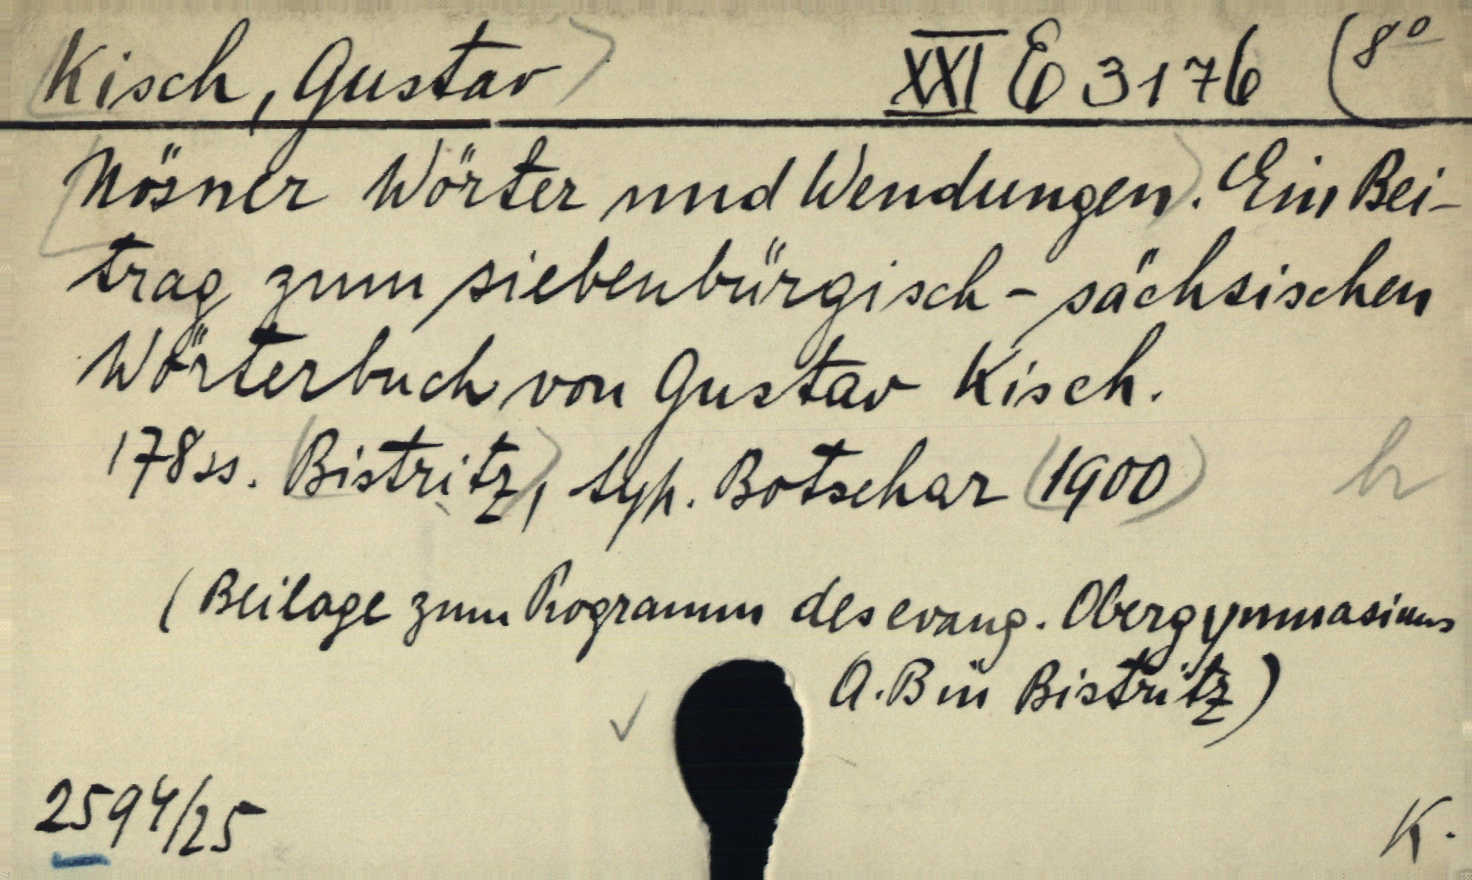 Kisch, Gustav XXI E 3176 (8°
Nösner Wörter und Wendungen. Ein Bei-
trag zum siebenbürgisch-sächsischen
Wörterbuch von Gustav Kisch.
178 ss. Bistritz, typ. Botschar 1900
(Beilage zum Programm des evang. Obergymnasiums
A.B in Bistritz)
2594/25 K.